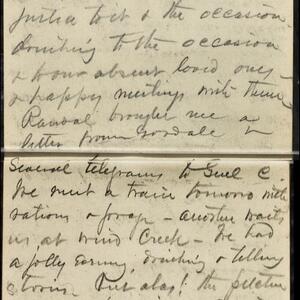 justice to it & the occasion
drinking to the occasion
& to our absent loved ones
& happy meetings with them
Randal brought me a
letter from
Several telegrams to Genl C.
We meet a train tomorro with
rations & forage - another waits
us at Wind Creek - We had
a jolly evening, drinking & telling
stories. But alas! the picture